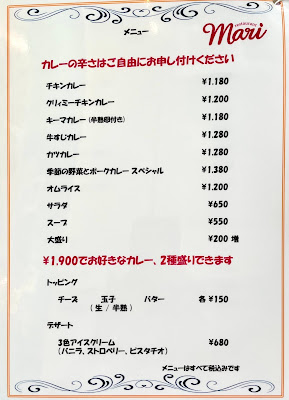 メニュー
Mari
カレーの辛さはご自由にお申し付けください
チキンカレー ¥1.180
クリィミーチキンカレー ¥1.200
キーマカレー(半熟卵付き) ¥1.180
牛すじカレー ¥1.280
カツカレー ¥1.280
季節の野菜とポークカレー スペシャル ¥1.380
オムライス ¥1.200
サラダ ¥650
スープ ¥550
大盛り ¥200 増
¥1.900でお好きなカレー、2種盛りできます
トッピング
チーズ 玉子 バター 各 ¥150
(生 / 半熟)
デザート
3色アイスクリーム ¥680
(バニラ、ストロベリー、ピスタチオ)
メニューはすべて税込みです